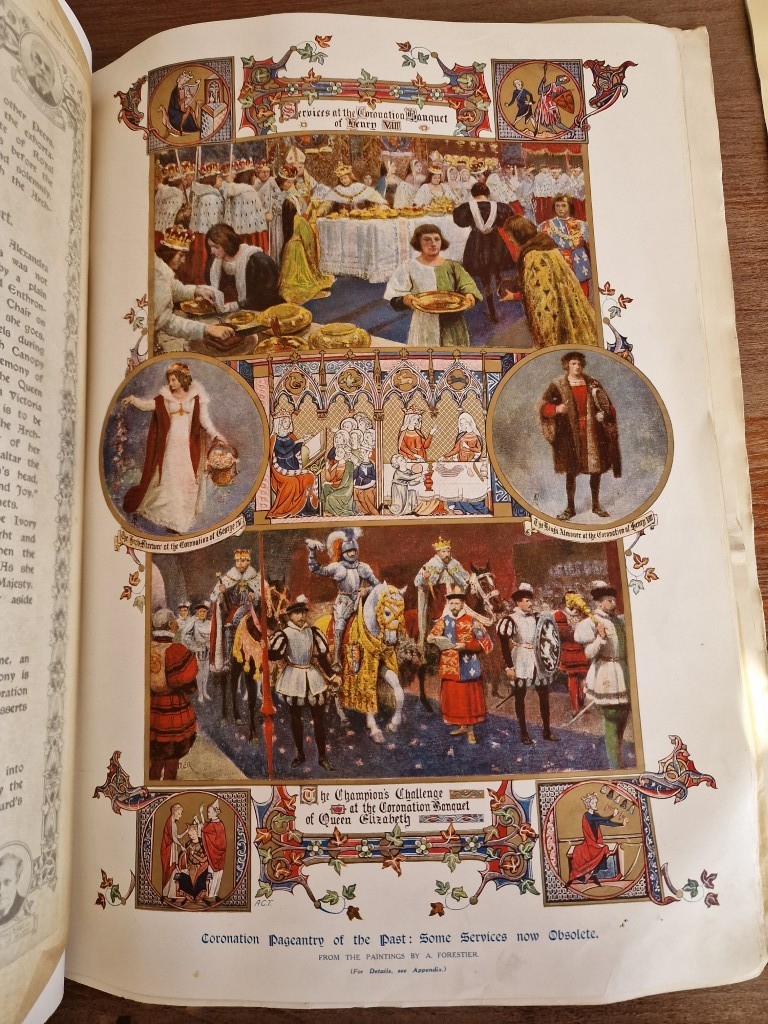 other Peers
the
of Royal
before the
and solemnly
the Arch-
rt.
Alexandra
was not
by a plain
Enthron-
Chair on
she goes,
during
Canopy
emony of
the Queen
Victoria
is to be
the Arch-
of her
altar the
n's head,
and Joy."
nets.
e Ivory
and
hen the
As she
Majesty.
aside
ne, an
ony is
oration
sserts
into
y the
urd's
Services at the Coronation Banquet
of Henry VIII
The Herb-Strewer at the Coronation of George IV
The King's Almoner at the Coronation of Henry VIII
The Champion's Challenge
at the Coronation Banquet
of Queen Elizabeth
A.C.T.
Coronation Pageantry of the Past: Some Services now Obsolete.
FROM THE PAINTINGS BY A. FORESTIER.
(For Details, see Appendix.)